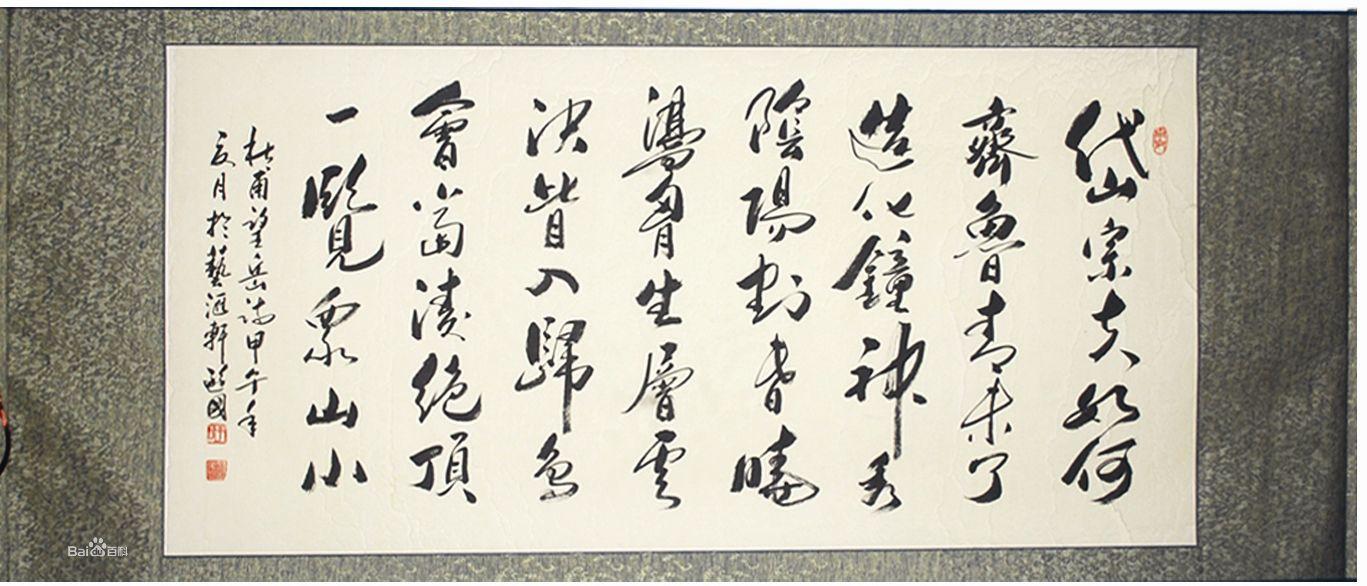 岱宗夫如何
齊魯青未了
造化鐘神秀
陰陽割昏曉
蕩胸生層雲
決眥入歸鳥
會當凌絕頂
一覽衆山小
杜甫望岳詩甲午年
夏月於藝滙軒國
Bai百科